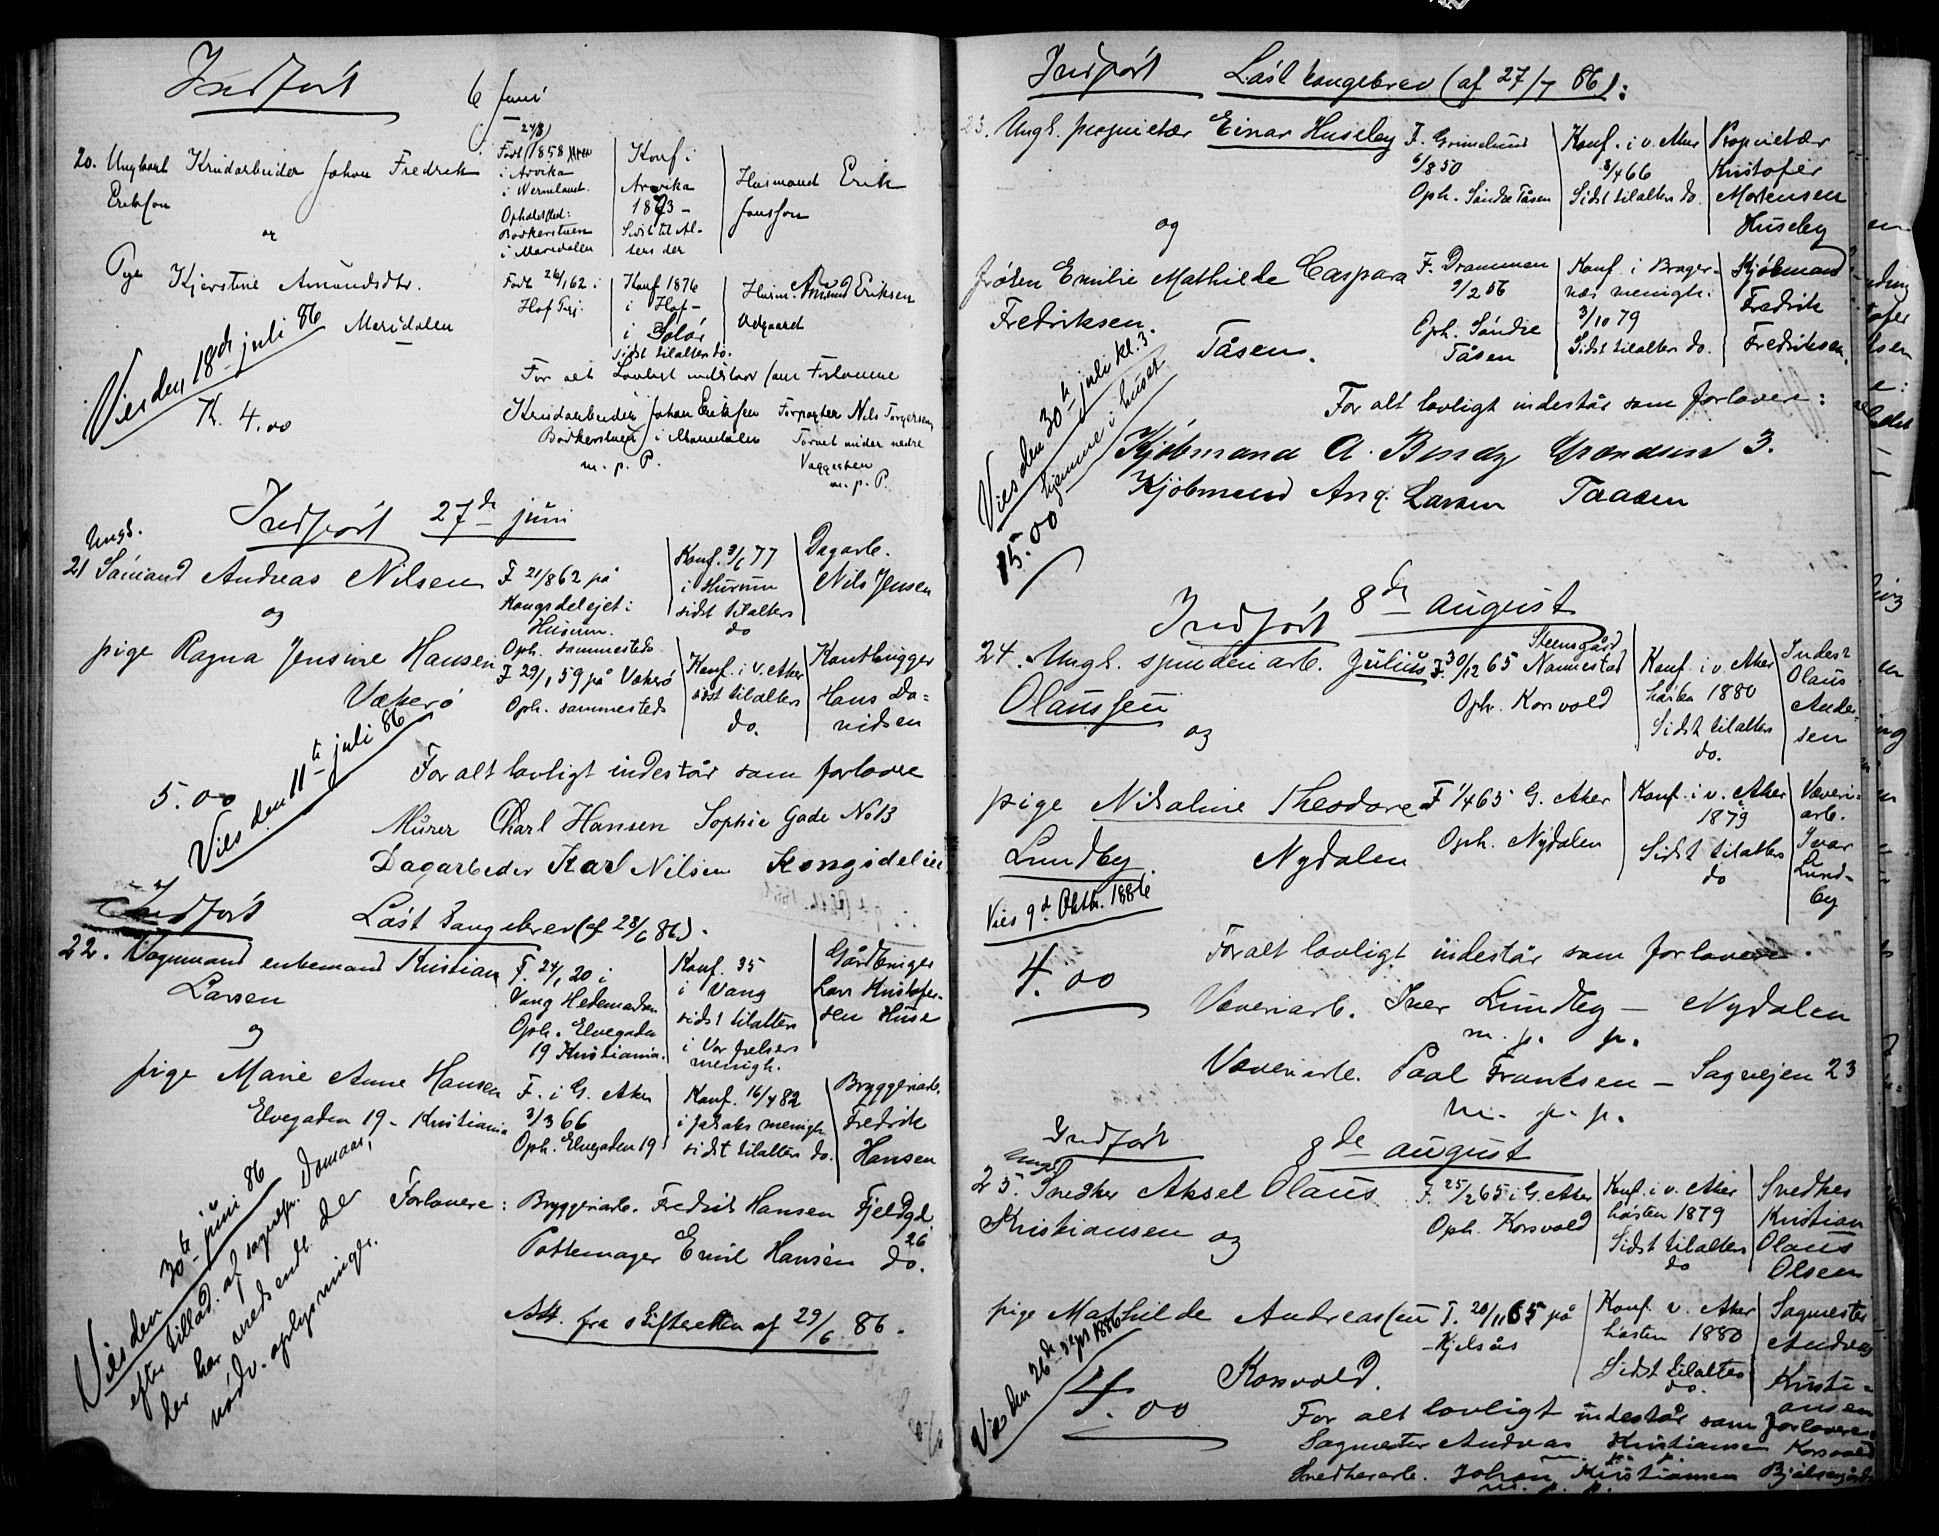 Indført 6 juni
20. Ungkarl Krudarbeider Johan Fredrik
Eriksen
og
Pige Kjerstine Amundsdtr.
Maridalen
Født 24/3 1858
i Arvika
i Wermland.
Opholdssted:
Bödkerstuen
i Maridalen
Konf i
Arvika
1873 -
Sidst til Al-
ters der
Husmand Erik
Jonsson
Født 26/1 62 i
Hof
Konf 1876
i Hof -
i Solør
sidst tilalters do.
Husm. Amund Eriksen
Vies den 18de juli 86
Kr. 4.00
For alt Lovligt indstaar som Forlovere
Krudarbeider Johan Eriksen
Bödkerstuen i Maridalen
m. p. P.
Forpagter Nils Torgersen
under nedre
m. p. P.
Indført 27de juni
Ungk.
21 Sömand Andreas Nilsen
og
pige Ragna Jensine Hansen
Vækerö
F 21/8 62 på
Kongsdelejet i
Hurum.
Oph. sammesteds
Konf. 3/6 77
i Hurum
sidst tilalters
do
Dagarb.
Nils Jensen
F 29/1 59 på Vækerö
Oph. sammesteds
Konf. i v. Aker
sidst tilalters
do.
Hans Da=
vidsen
Vies den 11te juli 86
5.00
For alt lovligt indestår som forlovere
Murer Charl Hansen Sophie Gade No 13
Dagarbeder Karl Nilsen Kongsdelie
Indført Løst kongebrev (af 28/6 86).
22. Vognmand enkemand Kristian
Larsen
og
pige Marie Anne Hansen
Elvegaden 19 - Kristiania
F. 24/1 20 i
Vang Hedemarken
Oph. Elvegaden
19 Kristiania.
Konf. 35
i Vang
sidst tilalters
i Vor frelsers
menigh.
Gårdbruger
Lars Kristofer-
sen Huse
F. i G. Aker
3/3 66
Oph. Elvegaden 19
Konf. 16/4 82
i Jakobs menigh
sidst tilalters do.
Bryggeriarb.
Fredrik
Hansen
Vies den 30te juni 86
efter tillad. af sognepr. Domaas,
der har nedsendt de
nödv. oplysninger.
Forlovere: Bryggeriarb. Fredrik Hansen Fjeldgd. 26
Pottemager Emil Hansen do.
Att. fra skifteretten af 29/6 86.
Indført Løst kongebrev (af 27/7 86):
23. Ungk. proprietær Einar Huseby
og
frøken Emilie Mathilde Caspara
Fredriksen.
Tåsen.
F. Grimelund
6/8 50
Oph. Søndre Tåsen
Konf. i v. Aker
8/4 66
Sidst tilalters do.
Proprietær
Kristofer
Mortensen
Huseby
F. Drammen
9/2 56
Oph. Søndre
Tåsen
Konf. i Brager-
næs menigh.
3/10 79
Sidst tilalters do.
Kjöbmand
Fredrik
Fredriksen.
Vies den 30te juli kl. 3
hjemme i huset
15.00
For alt lovligt indestår som forlovere:
Kjöbmand A. Grændsen 3.
Kjöbmand Ang. Larsen Taasen
Indført 8de august
24. Ungk. spinderiarb. Julius
Olaussen
og
pige Nikoline Theodora
Lundby
Nydalen
F. 30/12 65 Steensgård
Nannestad
Oph. Korsvold
Konf. i v. Aker
høsten 1880
Sidst tilalters
do.
Inderst
Olaus
Ander-
sen
F 1/4 65 G. Aker
Oph. Nydalen
Konf. i v. Aker
1879
Sidst tilalters
do
Væveri-
arb.
Ivar
Lund-
by
Vies 9d. Oktb. 1886
4.00
For alt lovligt indestår som forlovere.
Væveriarb. Iver Lundby - Nydalen
m. p. p.
Væveriarb. Paal Frantsen - Sagvejen 23
m. p. p.
Indført 8de august
Ungk.
25. Snedker Aksel Olaus
Kristiansen og
pige Mathilde Andreassen
Korsvold.
F. 25/2 65 i G. Aker
Oph. Korsvold
Konf. i v. Aker
høsten 1879
Sidst tilalters
do
Snedker
Kristian
Olaus
Olsen
F. 20/11 65 på
Kjelsås
Konf. v. Aker
høsten 1880
Sidst tilalters
do.
Sagmester
Andreas
Kristi-
ansen
Vies den 26de sept 1886
4.00
For alt lovligt indestår som forlovere
Sagmester Andreas Kristiansen Korsvold
Snedkerarb. Johan Kristiansen
m. p. p.